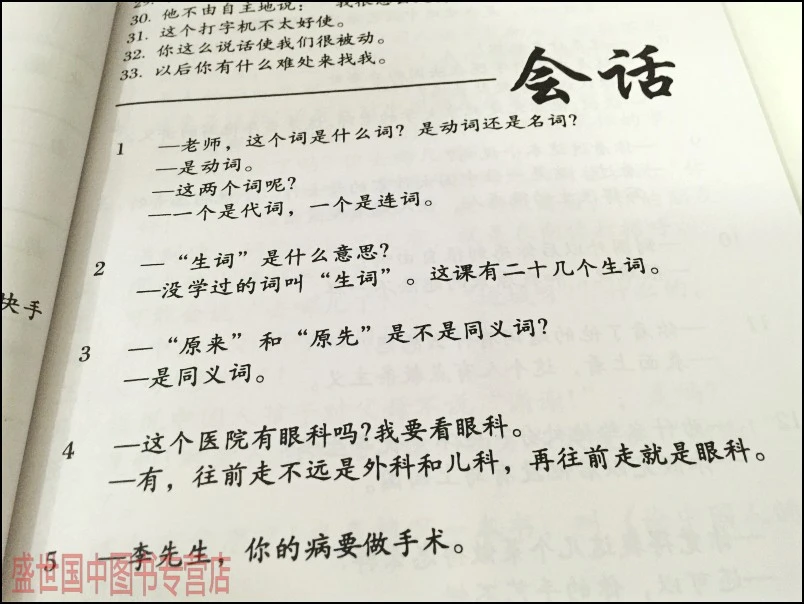 30. 他不由自主地说：
31. 这个打字机不太好使。
32. 你这么说话使我们很被动。
33. 以后你有什么难处来找我。
会话
1 —老师，这个词是什么词？是动词还是名词？
—是动词。
—这两个词呢？
—一个是代词，一个是连词。
2 —“生词”是什么意思？
—没学过的词叫“生词”。这课有二十几个生词。
3 —“原来”和“原先”是不是同义词？
—是同义词。
4 —这个医院有眼科吗？我要看眼科。
—有，往前走不远是外科和儿科，再往前走就是眼科。
5 —李先生，你的病要做手术。
快手
盛世国中图书专营店